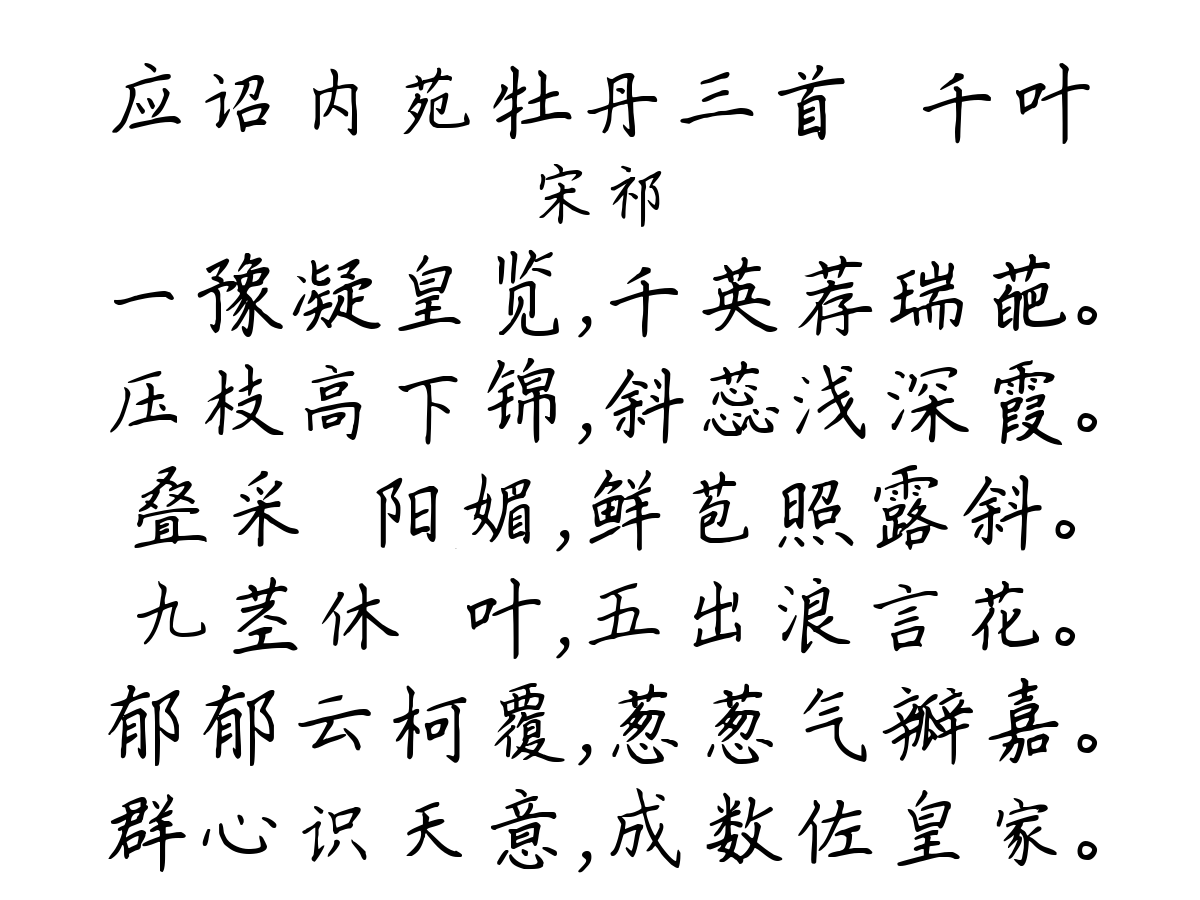 应诏内苑牡丹三首 千叶
宋祁
一豫凝皇览,千英荐瑞葩。
压枝高下锦,斜蕊浅深霞。
叠采 阳媚,鲜苞照露斜。
九茎休 叶,五出浪言花。
郁郁云柯覆,葱葱气瓣嘉。
群心识天意,成数佐皇家。